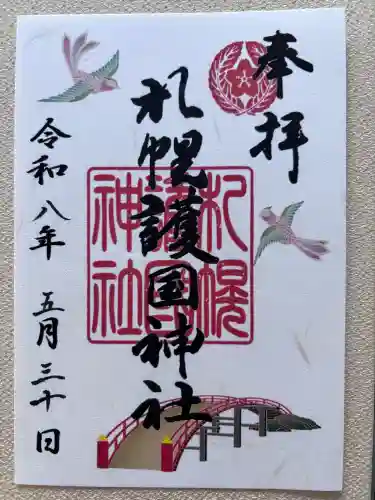 奉拝
札幌護国神社
札幌
護國
神社
令和八年 五月三十日